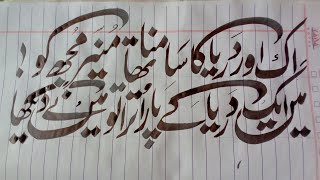 اِک اور دریا کا سامنا تھا منیر مجھ کو!
میں ایک دریا کے پار اُترا تو میں نے دیکھا